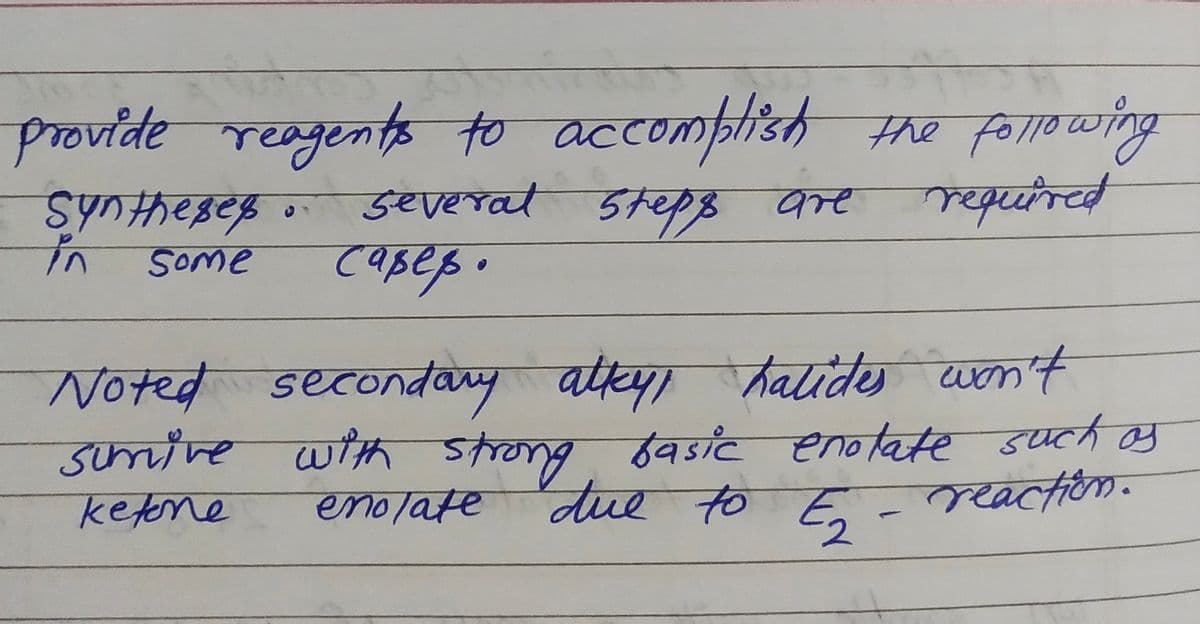 provide reagents to accomplish the following
Syntheses. several steps are required
in some cases.
Noted secondary alkyl halides won't
survive with strong basic enolate such as
ketone enolate due to E2 - reaction.